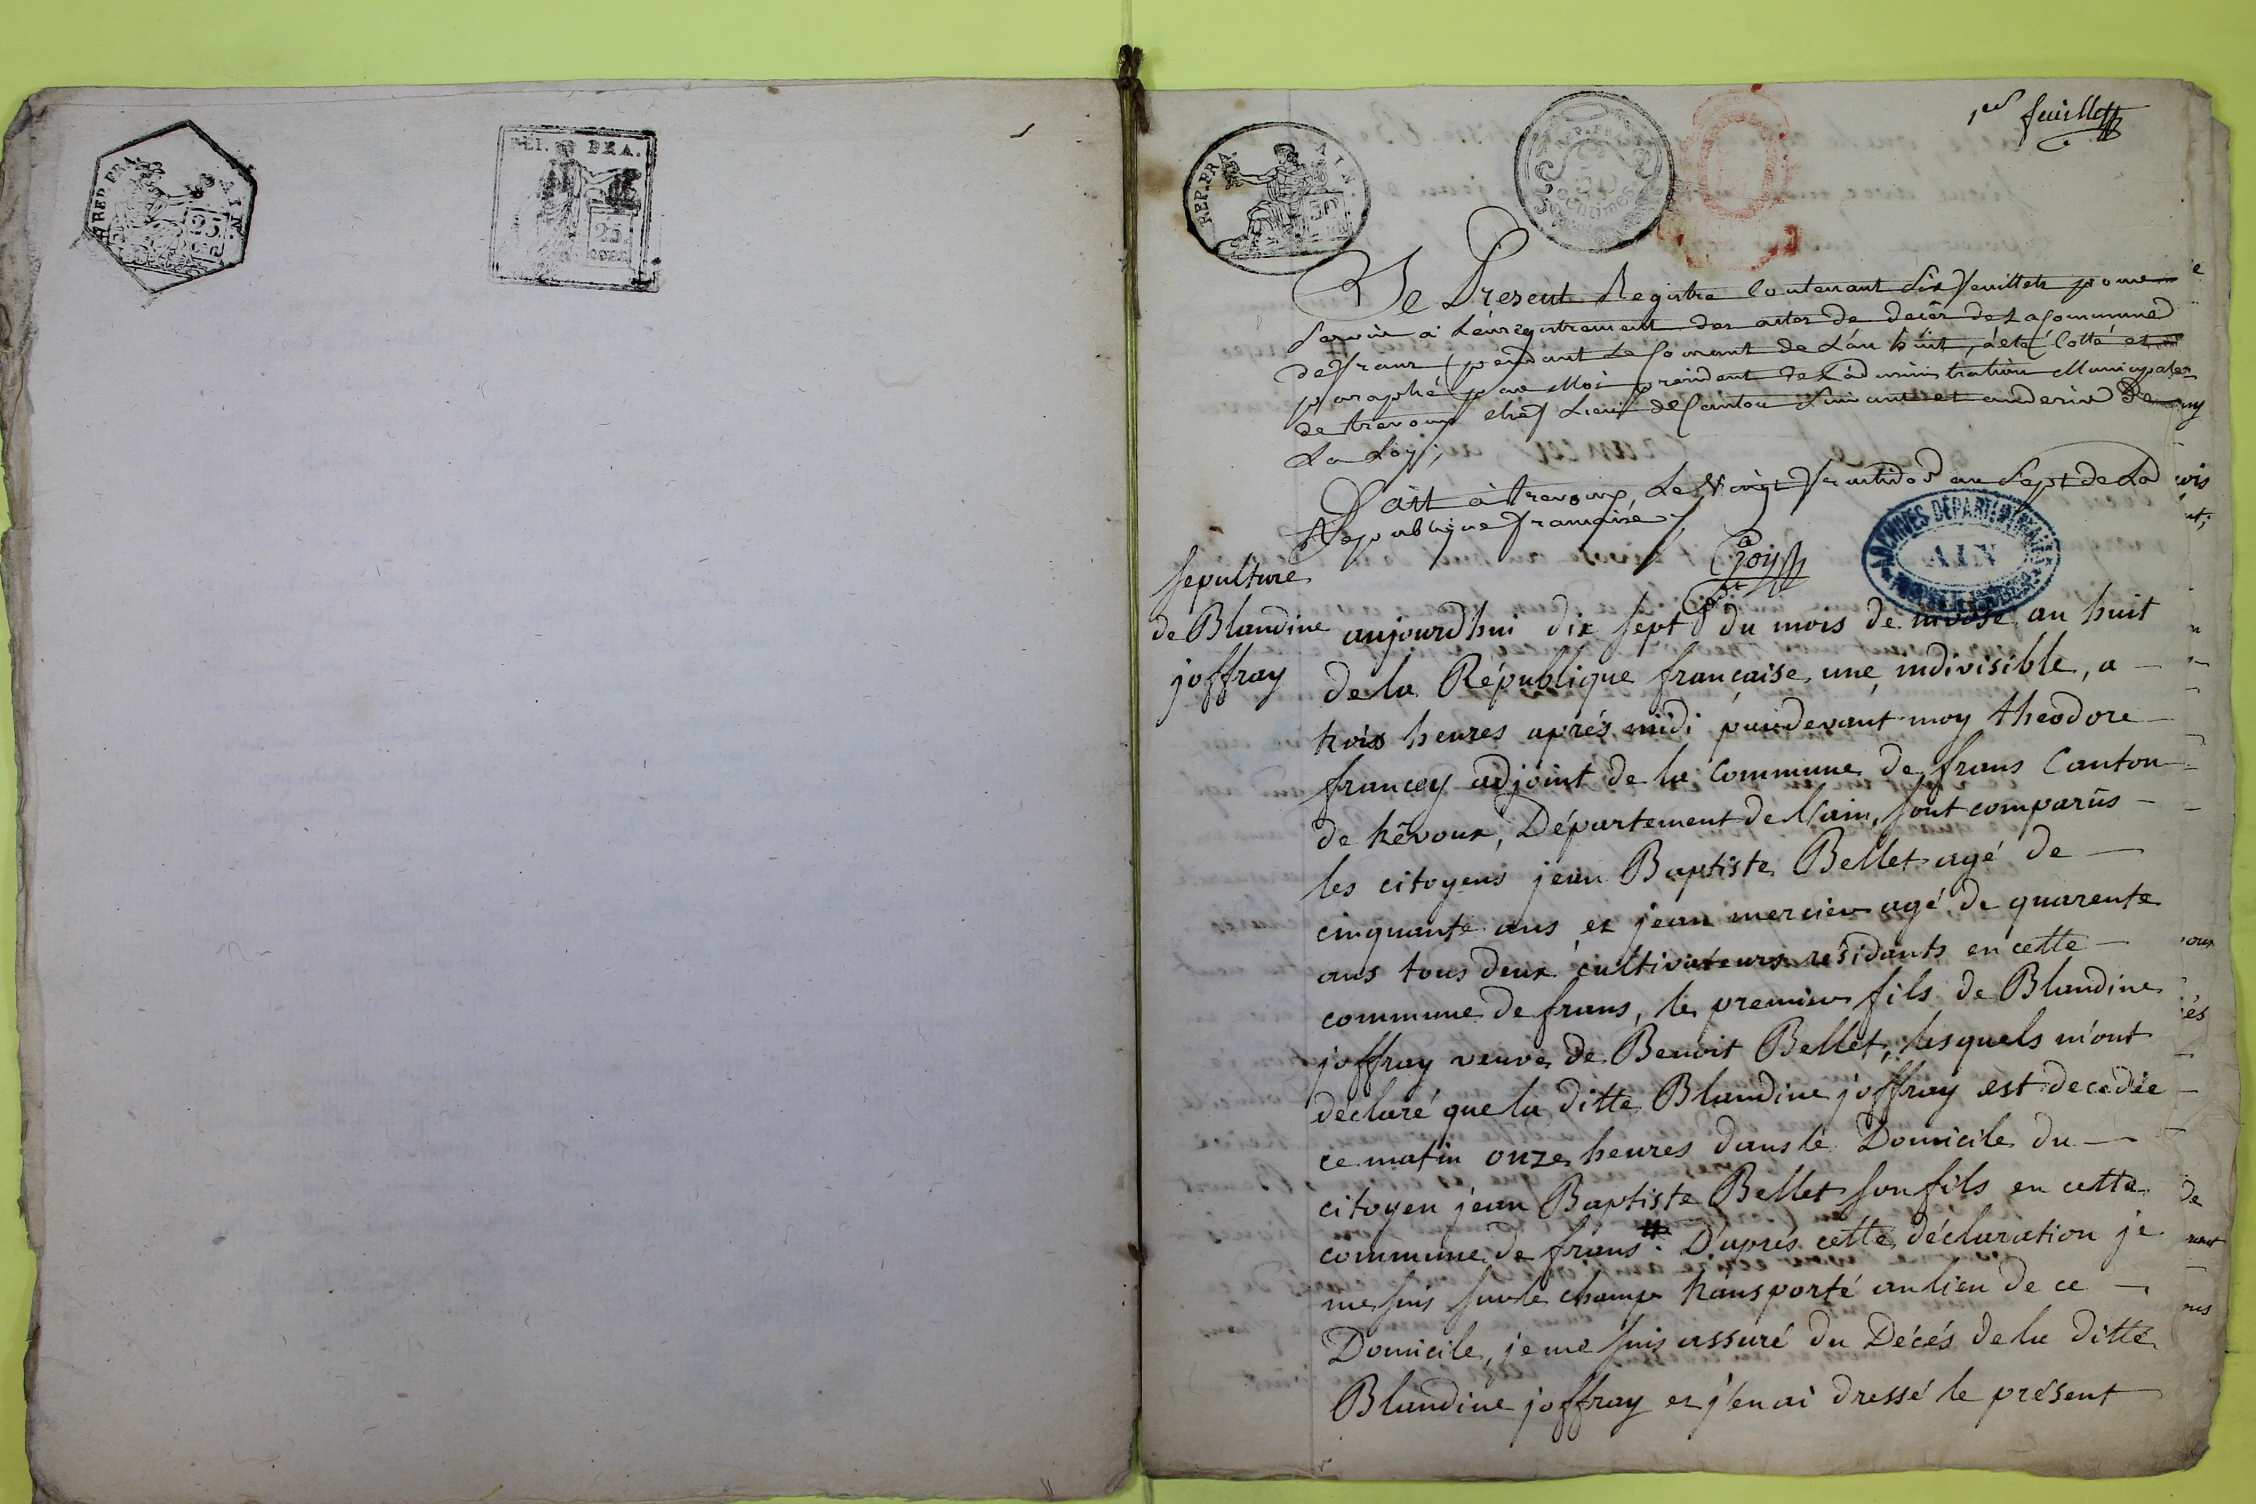 REP.FRA. AIN.
25
CES
REP. FRA.
25
CENT.
REP.FRA. AIN.
50
REP. FRA.
50
CENTIMES
1er feuillet
Le Present Registre Contenant Six feuillets pour
Servir a L'enregistrement des actes de décès de La Commune
de frans pendant Le Courant de L'an huit, a été Cotté et
paraphé par Moi président de L'administration Municipale
de trevoux chef Lieu de Canton Suivant et
La Loy;
fait à trevoux, Le Vingt fructidor an Sept de La
République française
ARCHIVES DÉPARTEMENTALES
AIN
sepulture
de Blandine
joffray
aujourdhui dix sept du mois de nivose an huit
de la République française une indivisible, a
trois heures aprés midi pardevant moy theodore
francey adjoint de la Commune de frans Canton
de trêvoux, Département de l'ain, sont comparûs
les citoyens jean Baptiste Bellet agé de
cinquante ans et jean mercier agé de quarente
ans tous deux cultivateurs résidants en cette
commune de frans, le premier fils de Blandine
joffray veuve de Benoit Bellet, lesquels m'ont
déclaré que la ditte Blandine joffray est decédée
ce matin onze heures dans le Domicile du
citoyen jean Baptiste Bellet son fils en cette
commune de frans. D'aprés cette déclaration je
me suis sur le champ transporté au lieu de ce
Domicile, je me suis assuré du Décés de la ditte
Blandine joffray et j'en ai dressé le présent